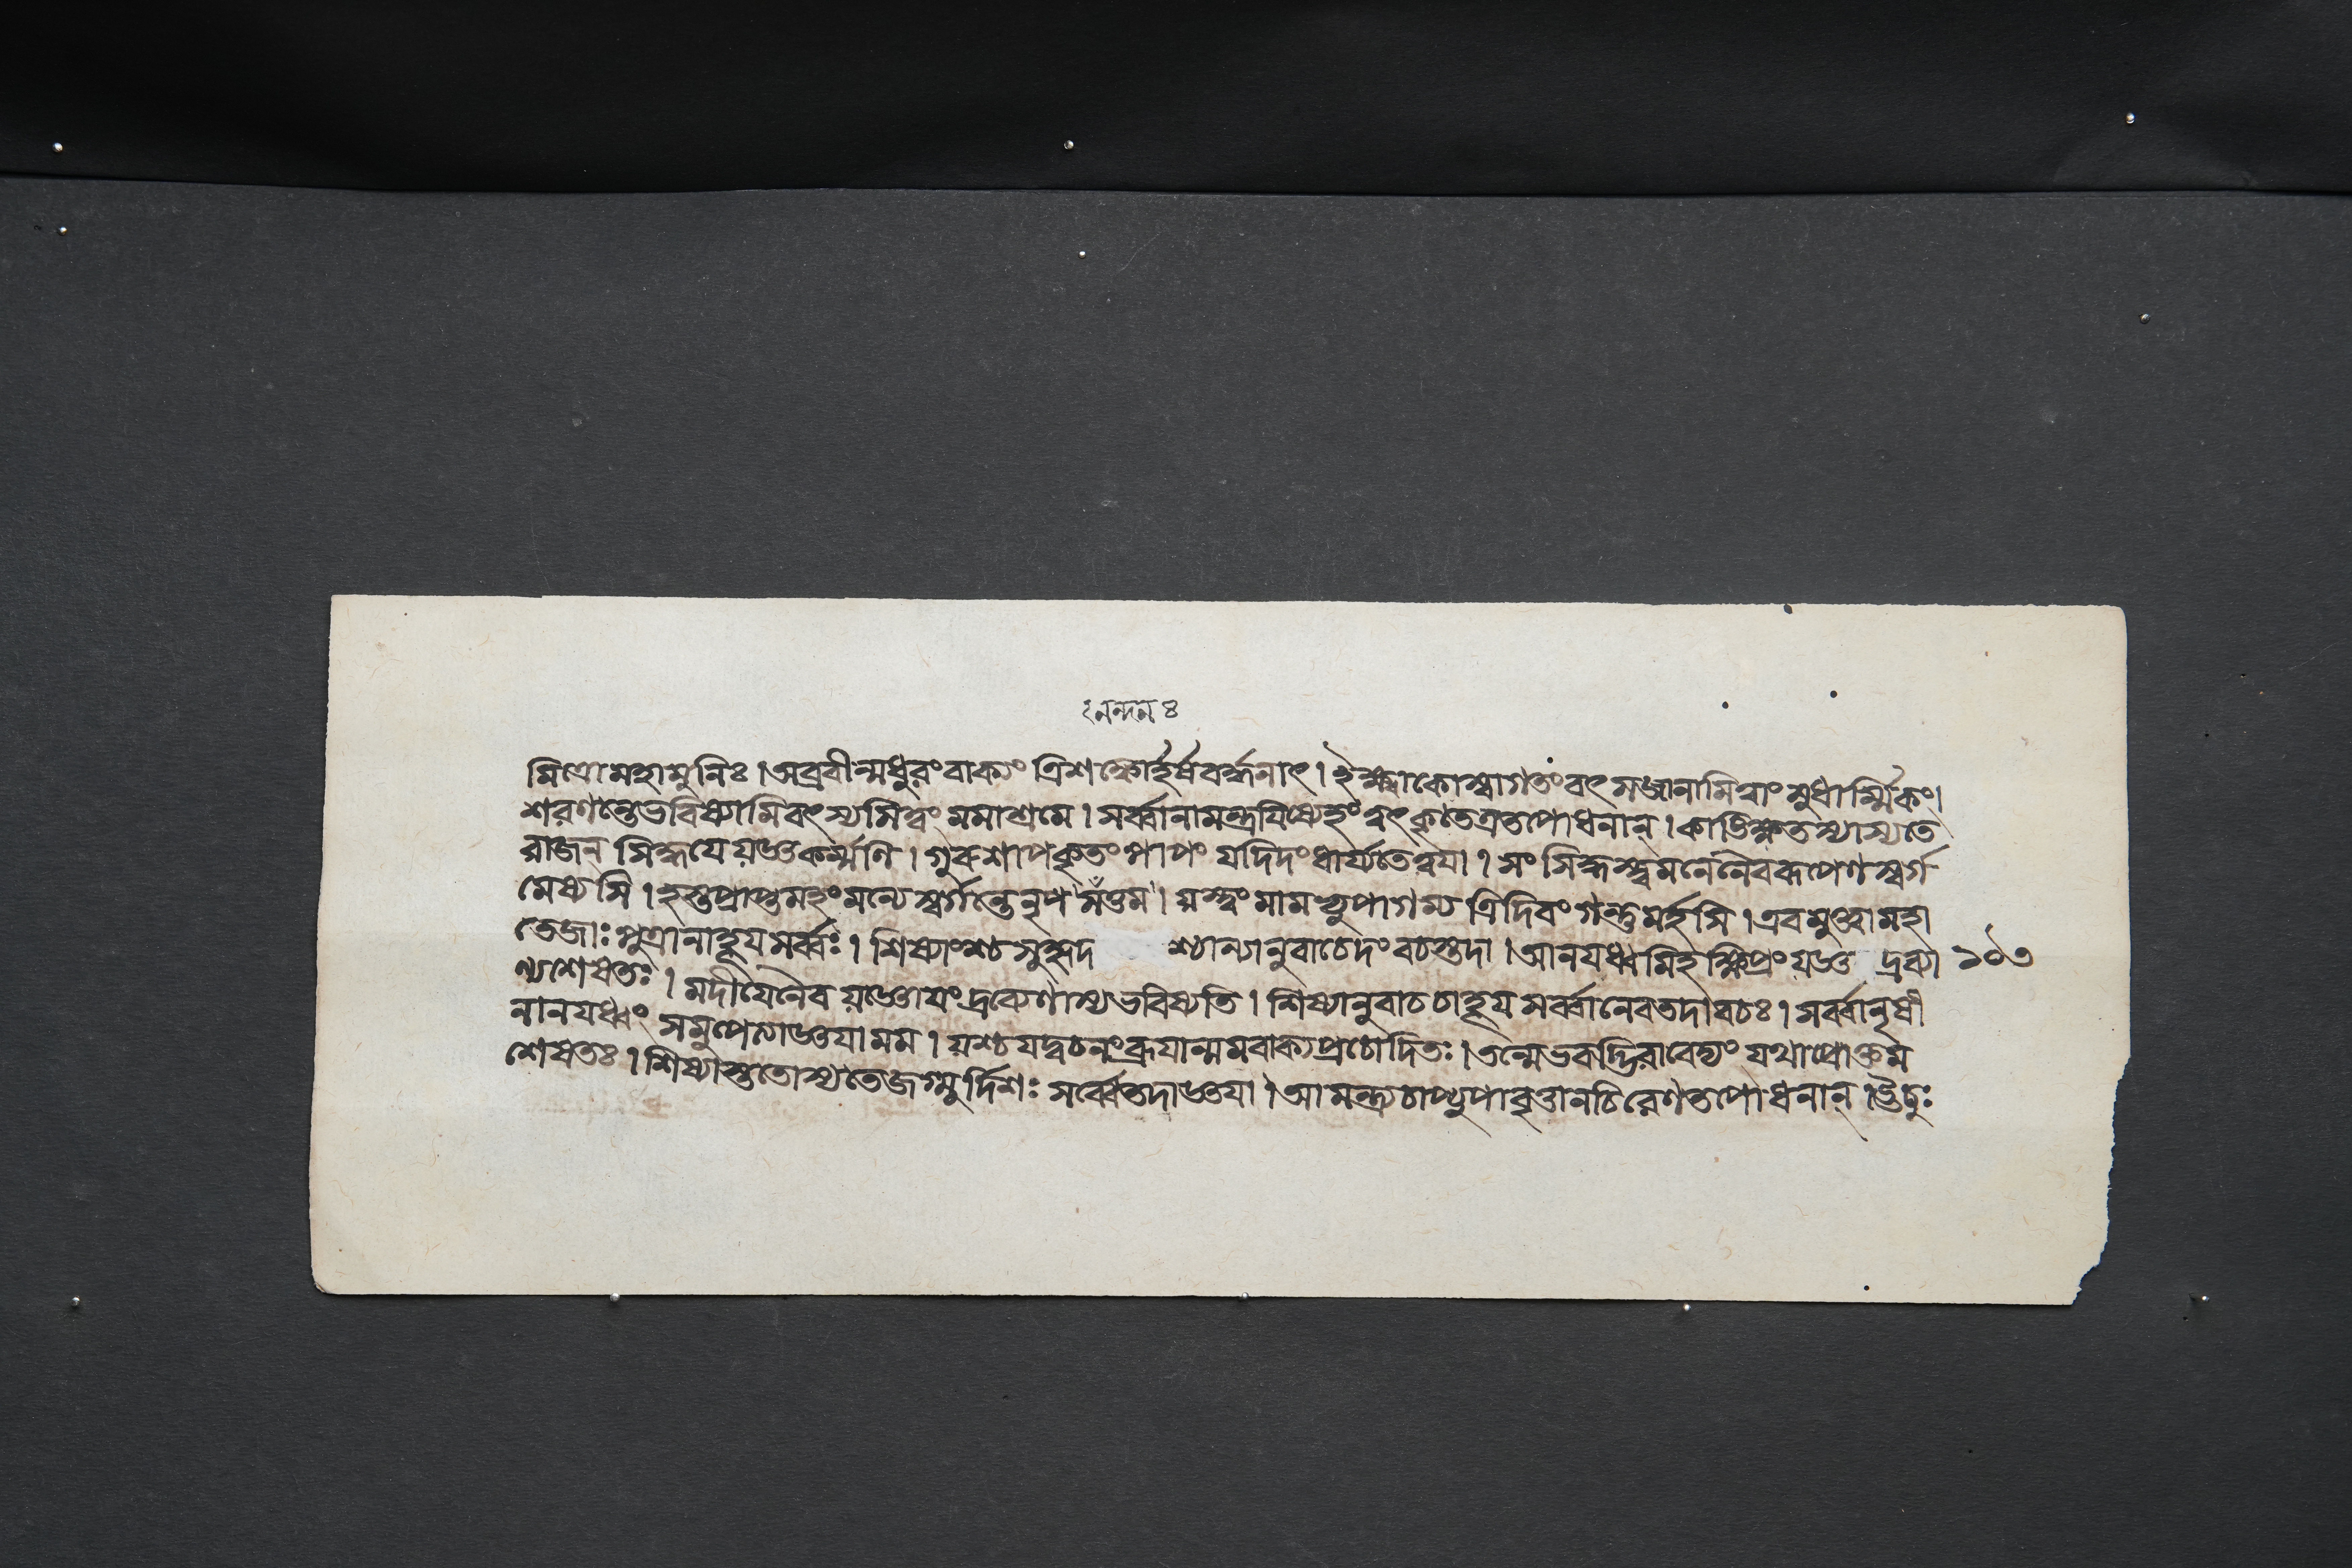 ঃনন্দন ৪
মিত্রোমহামুনিঃ। অব্রবীন্মধুরংবাক্যং ত্রিশঙ্কোর্হর্ষবর্দ্ধনাৎ। ইক্ষ্বাকোস্বাগতংবৎসজানামিত্বাং সুধার্ম্মিকং।
শরণন্তেভবিষ্যামিবৎস্যসিত্বং মমাশ্রমে। সর্ব্বানামন্ত্রযিষ্যেহং ত্বৎকৃতেত্রতপোধনান্। কাঙিক্ষতস্যাস্যতে
রাজন সিদ্ধযে যজ্ঞকর্ম্মণি। গুরুশাপকৃতং পাপং যদিদং ধার্য্যতেত্বযা। সং সিদ্ধস্ত্বমনেনৈবরূপেণস্বর্গ
মেষ্যসি। হস্তপ্রাপ্তমহংমন্যে স্বর্গন্তেনৃপসত্তম। যস্ত্বং মামভ্যুপাগম্য ত্রিদিবং গন্তুমর্হসি। এবমুক্ত্বামহা
তেজাঃ পুত্রানাহূয সর্ব্বশঃ। শিষ্যাংশ্চ সুহৃদ শ্যান্যানুবাচেদং বচস্তদা। আনযধ্বমিহক্ষিপ্রং যজ্ঞ দ্রব্যা ১০৩
ণ্যশেষতঃ। মদীযেনৈব যজ্ঞোযং দ্রব্যেণাস্যভবিষ্যতি। শিষ্যানুবাচচাহূয সর্ব্বানেবতদাবচঃ। সর্ব্বানৃষী
নানযধ্বং সমুপেতাজ্ঞযামম। যশ্চযদ্বচনংব্রূযান্মমবাক্যপ্রচোদিতঃ। তন্মেভবদ্ভিরাবেদ্যং যথাপ্রোক্তম
শেষতঃ। শিষ্যাস্ততোস্যতেজগ্মুর্দিশঃ সর্ব্বেতদাজ্ঞযা। আমন্ত্র্যচাপ্যুপাবৃত্তানচিরেণতপোধনান্। ঊচুঃ